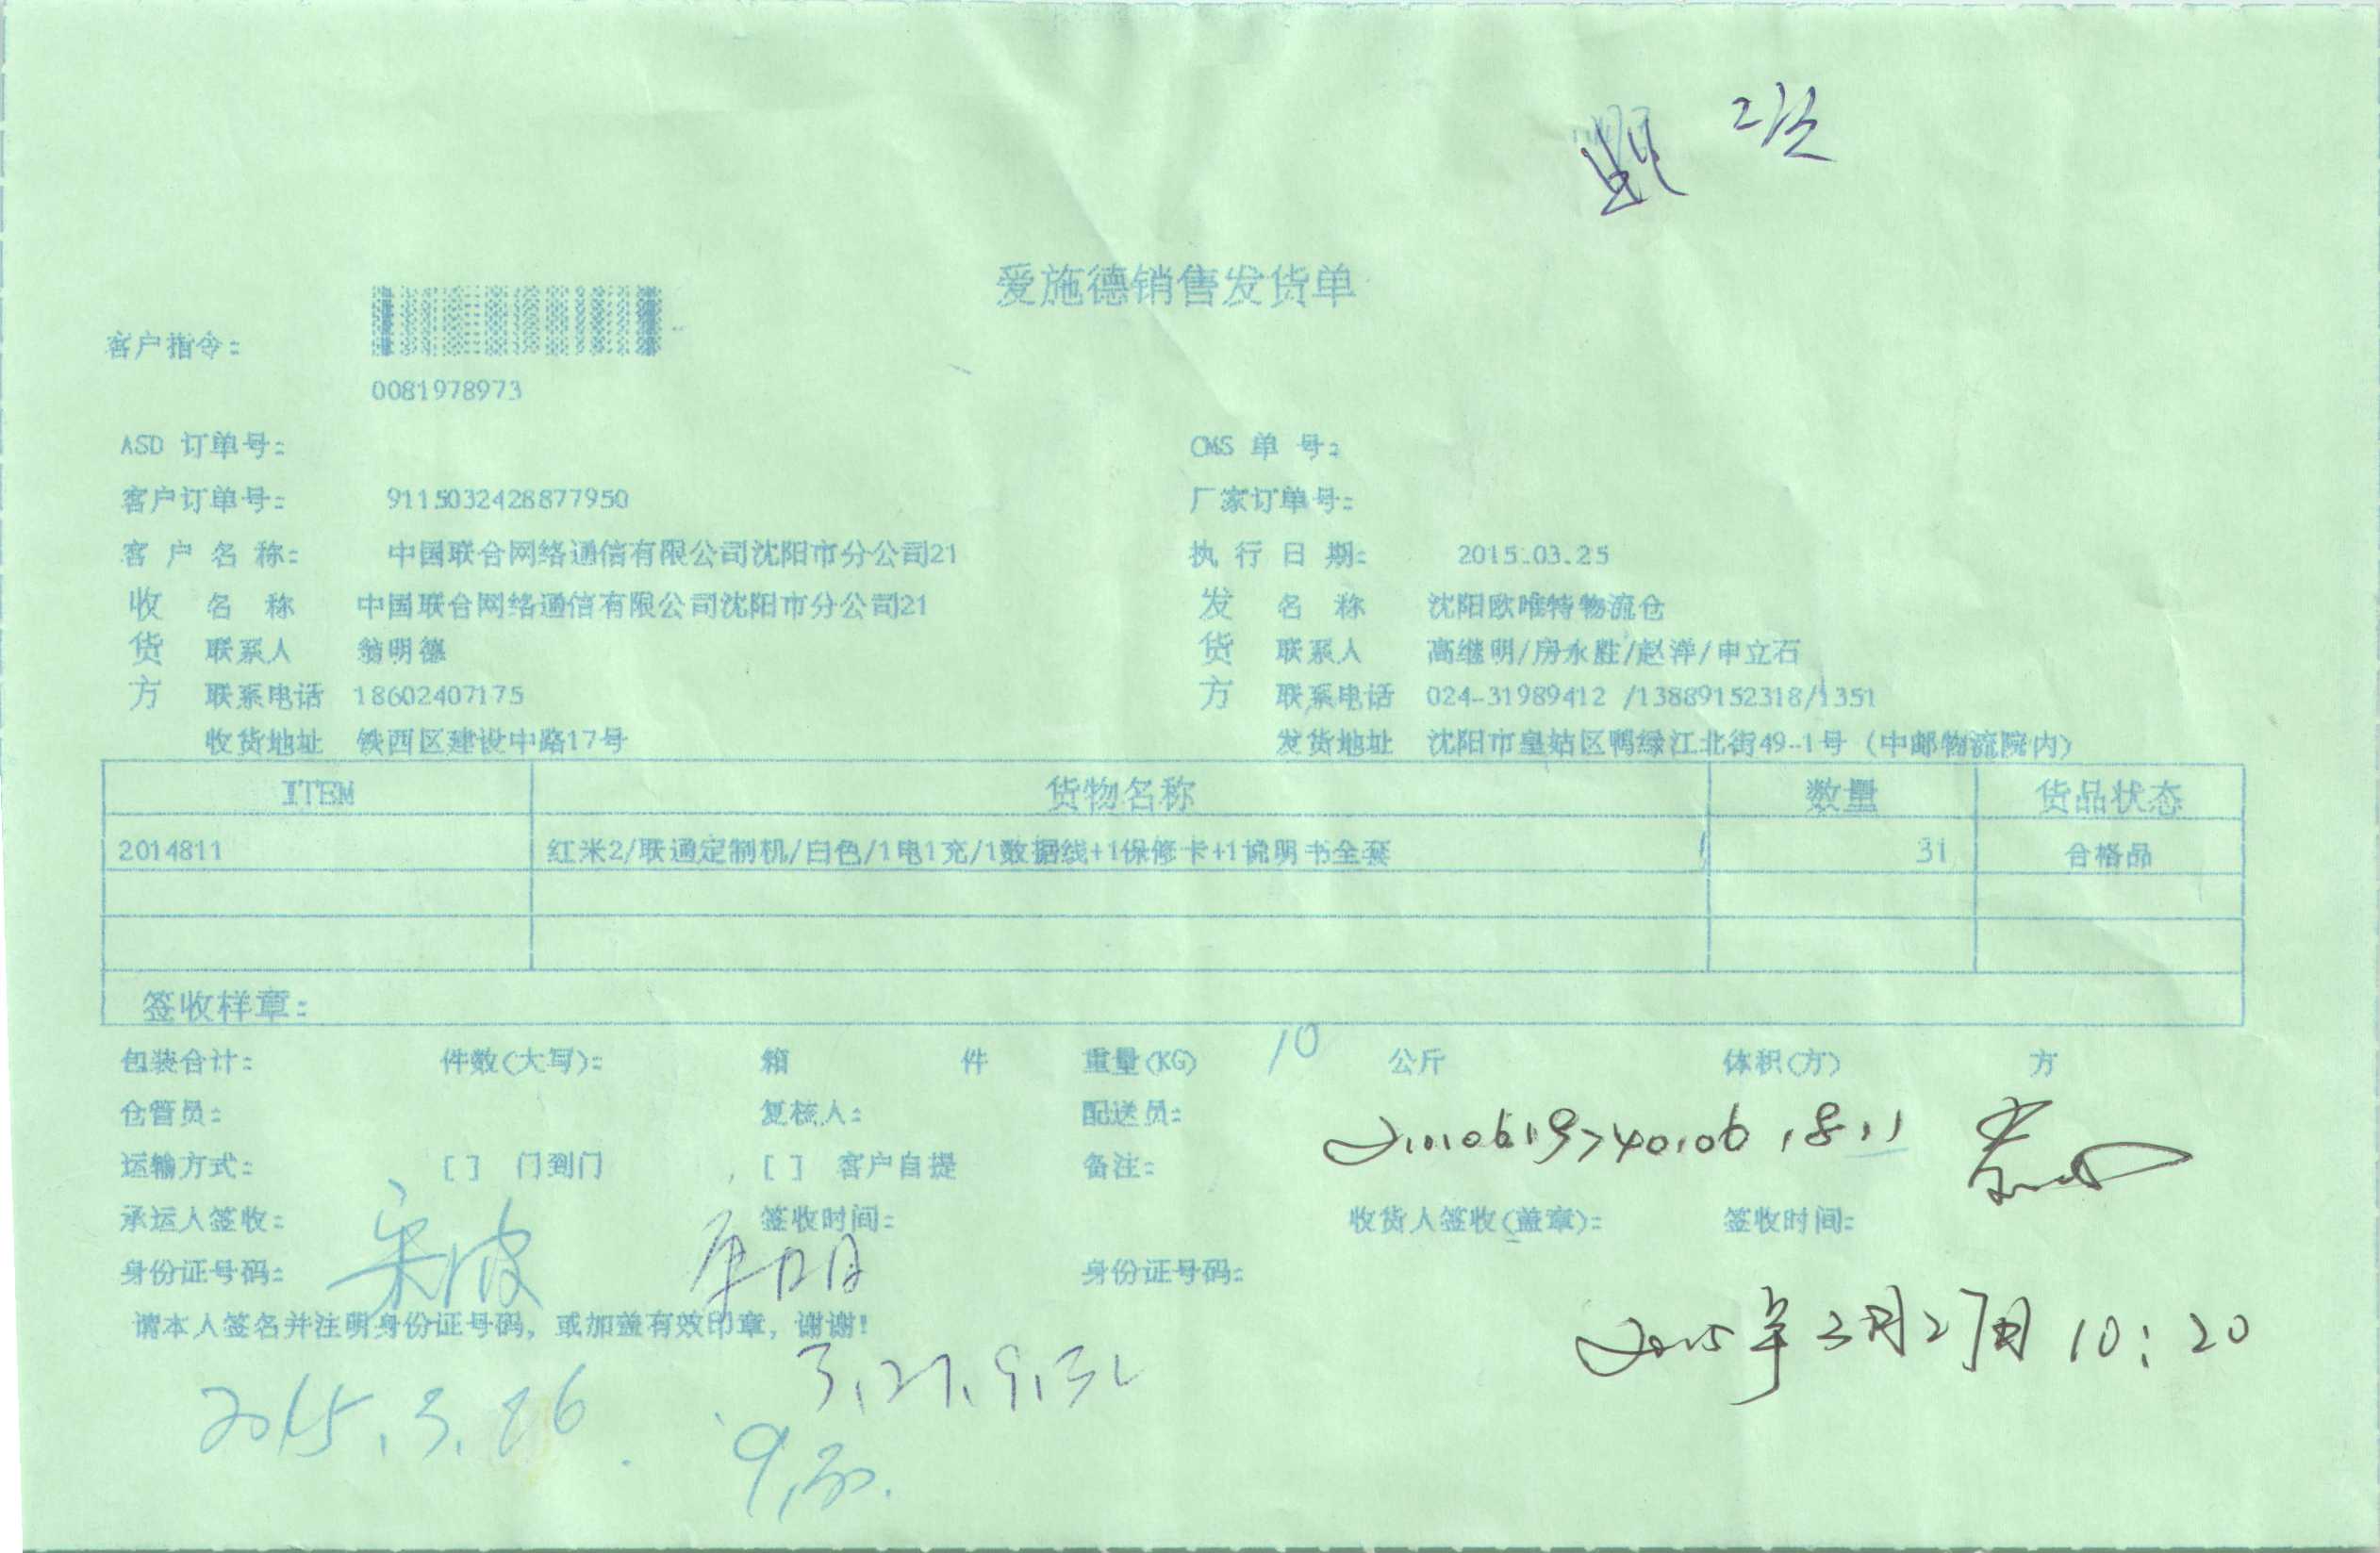 爱施德销售发货单
客户指令:
0081978973
ASD 订单号: CMS 单 号:
客户订单号: 9115032428877950 厂家订单号:
客 户 名 称: 中国联合网络通信有限公司沈阳市分公司21 执 行 日 期: 2015.03.25
收 名 称 中国联合网络通信有限公司沈阳市分公司21 发 名 称 沈阳欧唯特物流仓
货 联系人 翁明德 货 联系人 高继明/房永胜/赵洋/申立石
方 联系电话 18602407175 方 联系电话 024-31989412 /13889152318/1351
收货地址 铁西区建设中路17号 发货地址 沈阳市皇姑区鸭绿江北街49-1号 (中邮物流院内)
ITEM 货物名称 数量 货品状态
2014811 红米2/联通定制机/白色/1电1充/1数据线+1保修卡+1说明书全套 31 合格品
签收样章:
包装合计: 件数(大写): 箱 件 重量(KG) 10 公斤 体积(方) 方
仓管员: 复核人: 配送员:
运输方式: [ ] 门到门 [ ] 客户自提 备注:
承运人签收: 宋波 签收时间: 收货人签收(盖章): 签收时间:
身份证号码: 身份证号码:
请本人签名并注明身份证号码, 或加盖有效印章, 谢谢!
2015年3月27日 10:20
2015.3.26. 9.30.